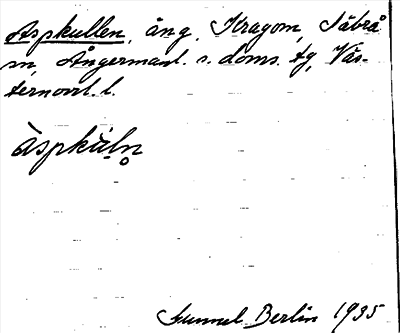 Aspkullen, äng, Kragom, Säbrå
sn, Ångermanl. s. doms. tg, Väs-
ternorrl. l.
àspkùln̥
Gunnel Berlin 1935